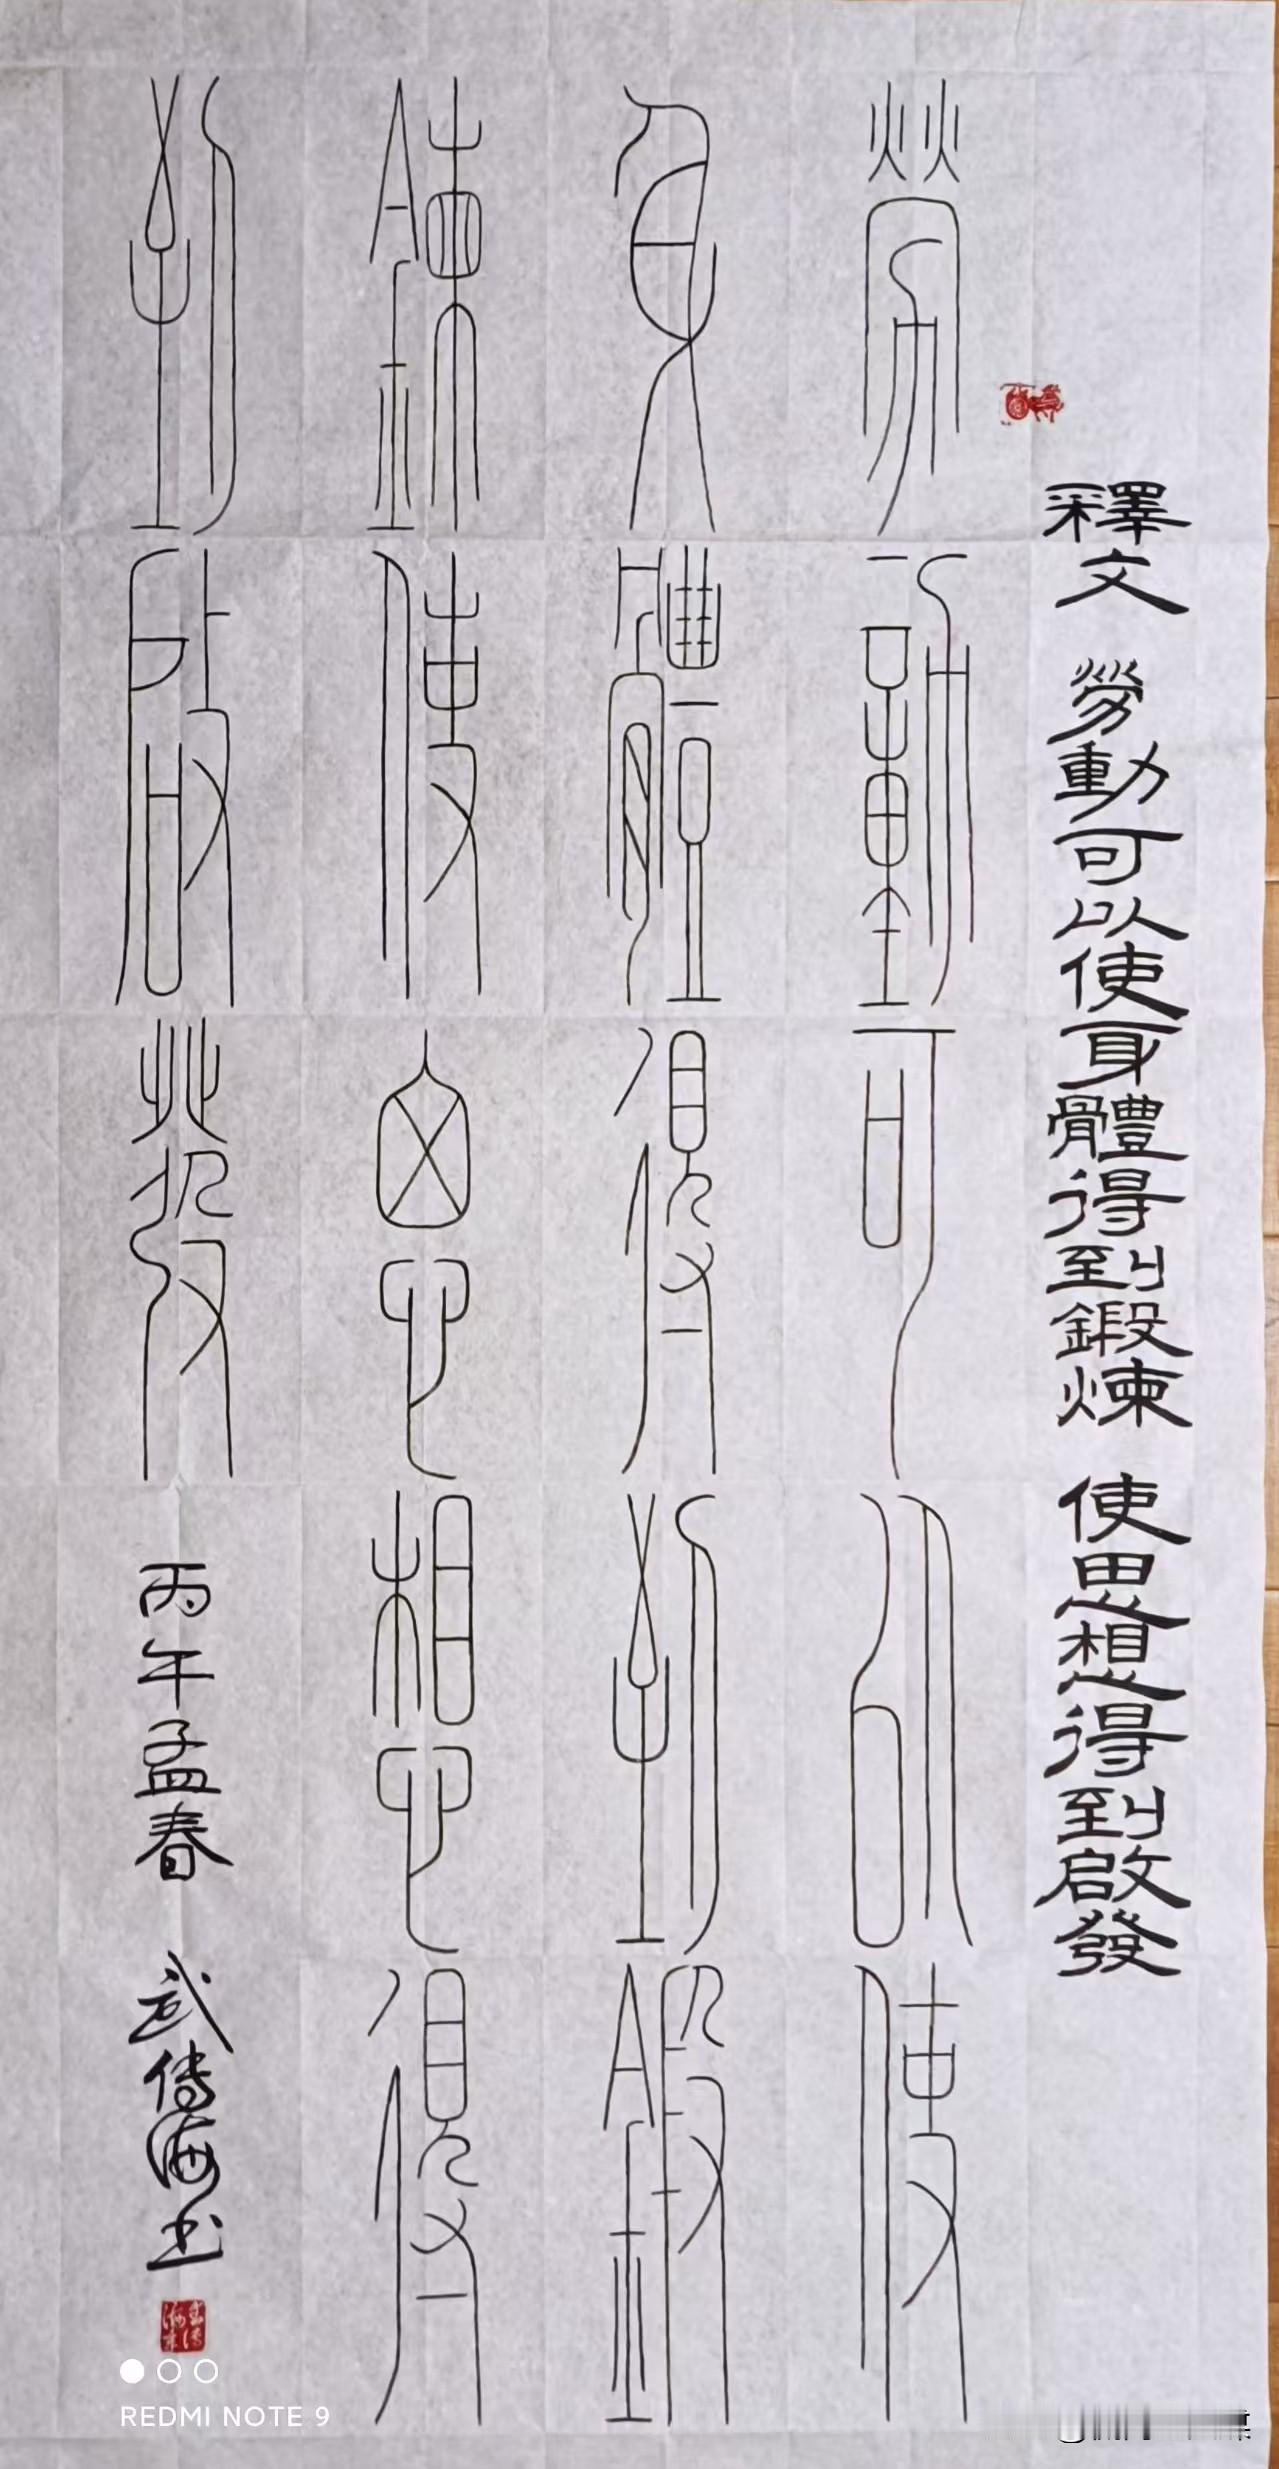 釋文 勞動可以使身體得到鍛煉 使思想得到啟發
勞動可以使
身體得到鍛
鍊使思想得
到啟發
丙午孟春 武傳海书
REDMI NOTE 9